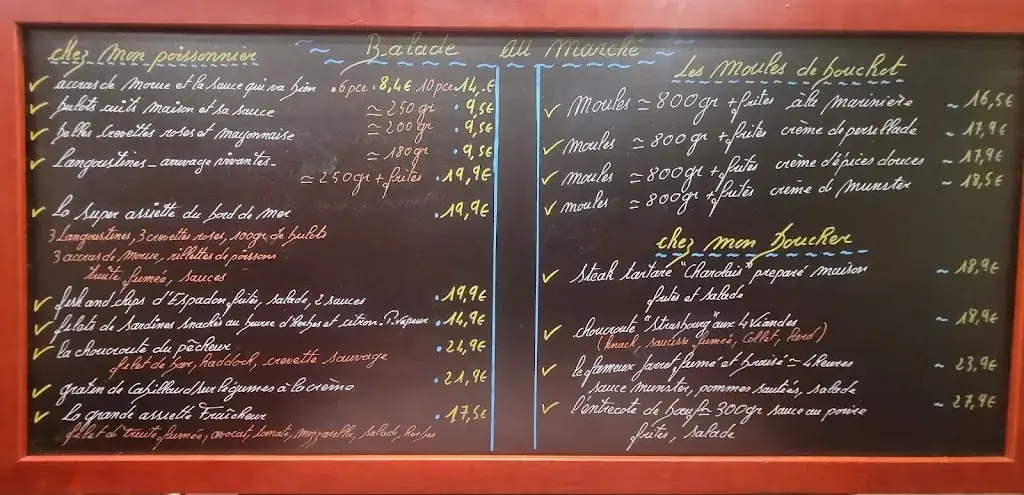 Balade au marché
chez mon poissonnier
accras de morue et la sauce qui va bien • 6 pce • 8,4€ 10 pce • 14,€
bulots cuits maison et sa sauce ≃ 250 gr • 9,5€
belles crevettes roses et mayonnaise ≃ 200 gr • 9,5€
Langoustines - arrivage vivantes - ≃ 180 gr • 9,5€
≃ 250 gr + frites • 19,9€
La super assiette du bord de mer • 19,9€
3 Langoustines, 3 crevettes roses, 100gr de bulots
3 accras de morue, rillettes de poissons
truite fumée, sauces
fish and chips d'Espadon, frites, salade, 2 sauces • 19,9€
filets de sardines snackés au beurre d'herbes et citron. P. vapeur • 14,9€
la choucroute du pêcheur • 24,9€
filet de bar, haddock, crevette sauvage
gratin de Cabillaud sur légumes à la crème • 21,9€
La grande assiette Fraîcheur • 17,5€
filet d truite fumée, avocat, tomate, mozzarella, salade, herbes
Les Moules de bouchot
Moules ≃ 800gr + frites à la marinière ~ 16,5€
moules ≃ 800gr + frites crème de persillade ~ 17,9€
moules ≃ 800gr + frites crème d'épices douces ~ 17,9€
moules ≃ 800gr + frites crème d munster ~ 18,5€
chez mon boucher
steak tartare "Charolais" préparé maison ~ 18,9€
frites et salade
choucroute "Strasbourg" aux 4 Viandes ~ 18,9€
(knack, saucisse fumée, Collet, lard)
le fameux jarret fumé et braisé ≃ 4 heures ~ 23,9€
sauce munster, pommes sautées, salade
l'entrecote de bœuf ≃ 300gr sauce au poivre ~ 27,9€
frites, salade